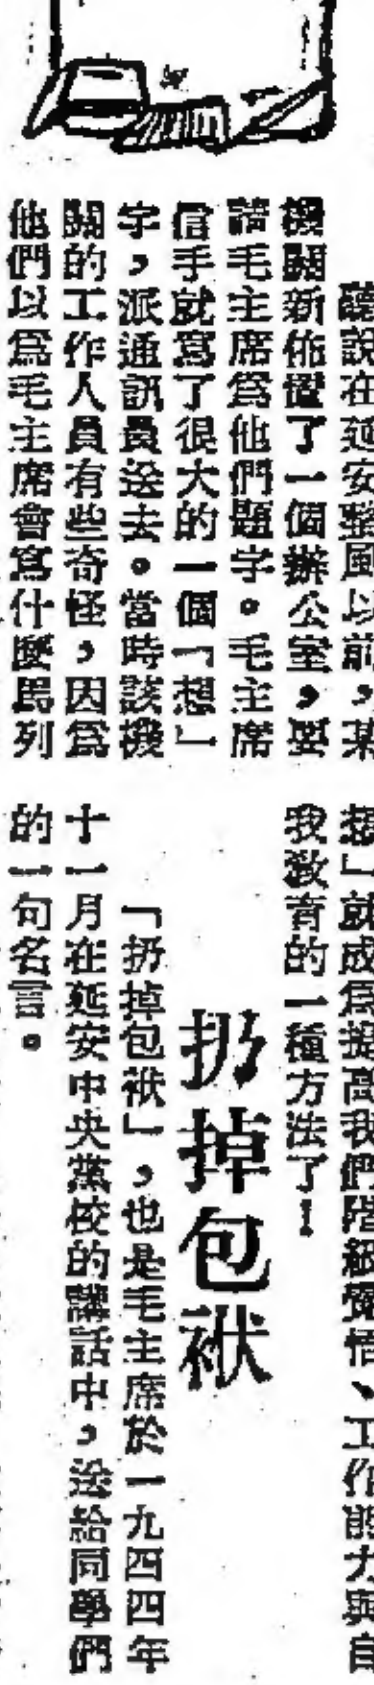 聽說在延安整風以前，某
機關新佈置了一個辦公室，要
請毛主席爲他們題字。毛主席
信手就寫了很大的一個「想」
字，派通訊員送去。當時該機
關的工作人員有些奇怪，因爲
他們以爲毛主席會寫什麼馬列
想」就成爲提高我們階級覺悟、工作能力與自
我教育的一種方法了！
扔掉包袱
「扔掉包袱」，也是毛主席於一九四四年
十一月在延安中央黨校的講話中，送給同學們
的一句名言。